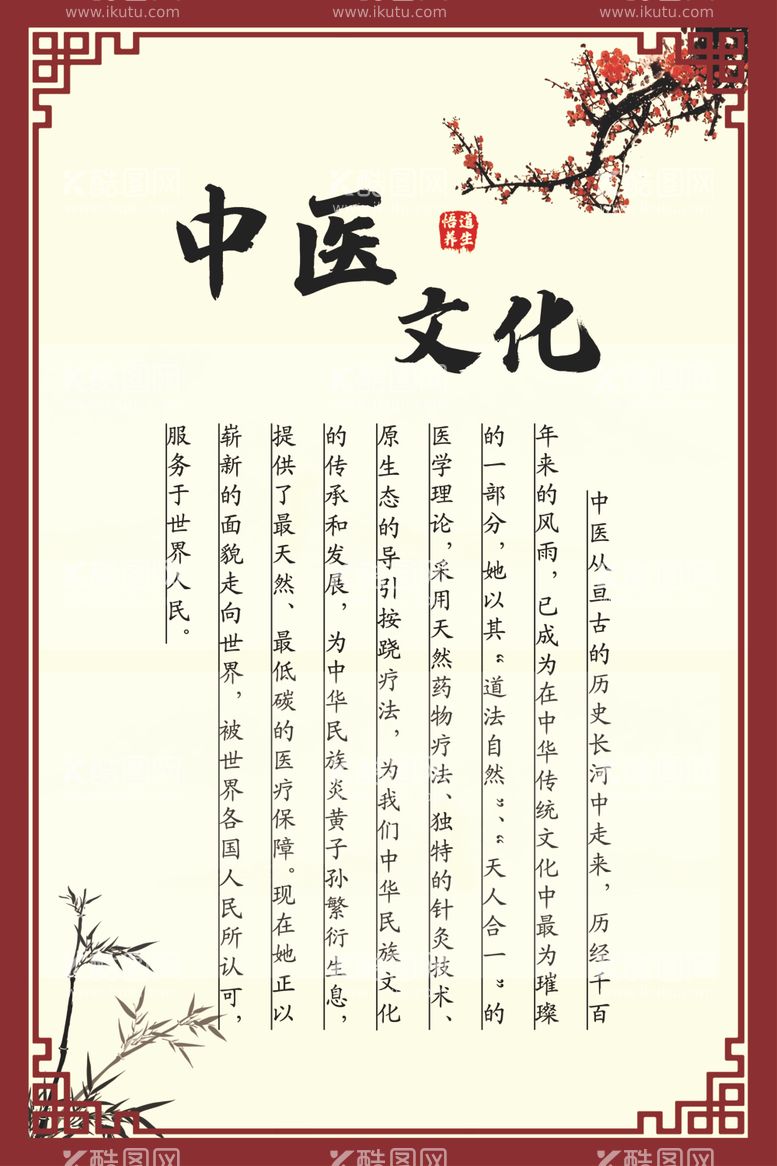 www.ikutu.com www.ikutu.com www.ikutu.com
酷图网 酷图网 酷图网
中医
悟道
养生
文化
中医从亘古的历史长河中走来，历经千百
年来的风雨，已成为在中华传统文化中最为璀璨
的一部分，她以其“道法自然”、“天人合一”的
医学理论，采用天然药物疗法、独特的针灸技术、
原生态的导引按跷疗法，为我们中华民族文化
的传承和发展，为中华民族炎黄子孙繁衍生息，
提供了最天然、最低碳的医疗保障。现在她正以
崭新的面貌走向世界，被世界各国人民所认可，
服务于世界人民。
酷图网 酷图网 酷图网